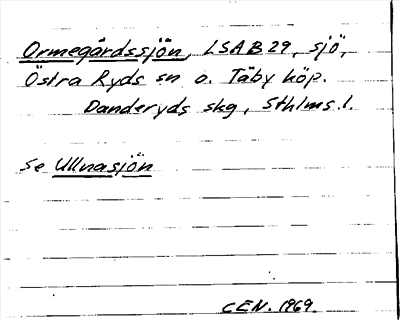 Ormegårdssjön, LSAB 29, sjö,
Östra Ryds sn o. Täby köp.
Danderyds skg, Sthlms l.
Se Ullnasjön
CEN. 1969.